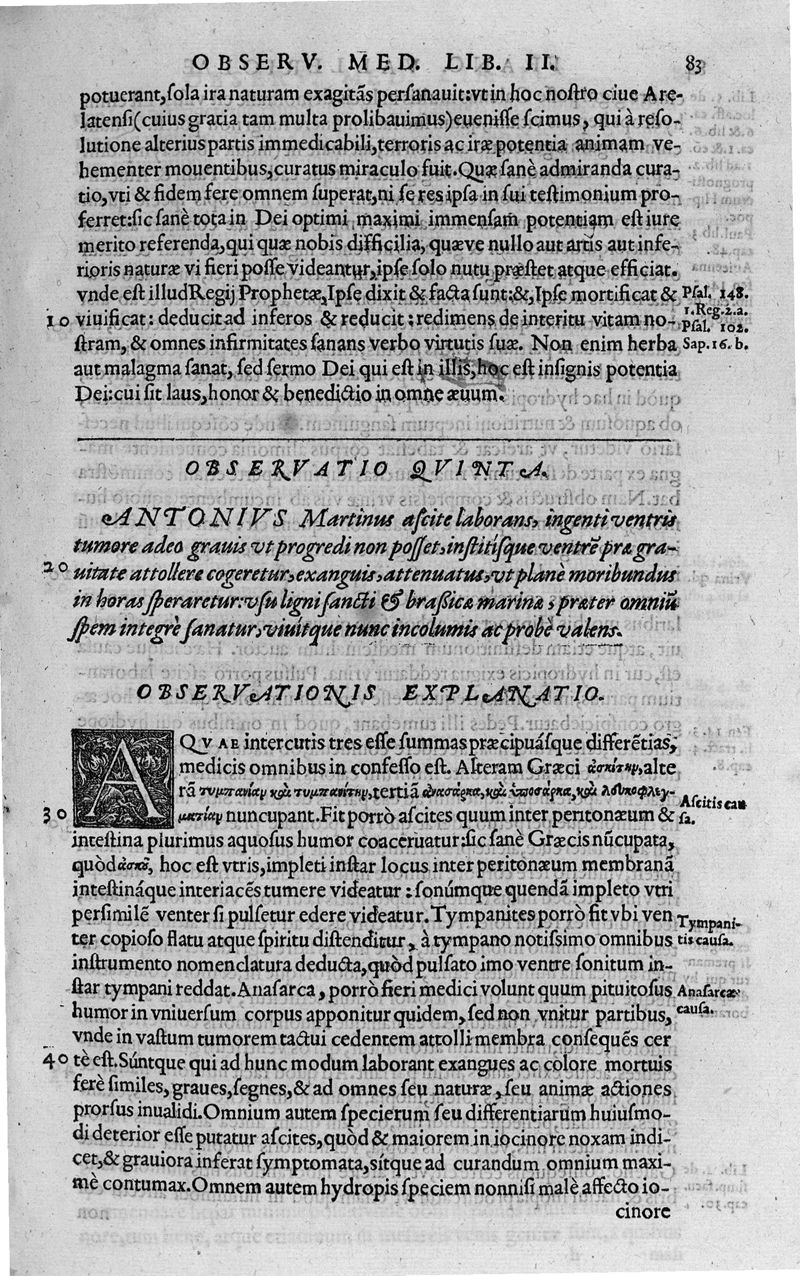 OBSERV. MED. LIB. II. 83
potuerant, ſola ira naturam exagitãs perſanauit: vt in hoc noſtro ciue Are-
latenſi (cuius gratia tam multa prolibauimus) eueniſſe ſcimus, qui à reſo-
lutione alterius partis immedicabili, terroris ac iræ potentia animam ve-
hementer mouentibus, curatus miraculo fuit. Quæ ſanè admiranda cura-
tio, vti & fidem fere omnem ſuperat, ni ſe res ipſa in ſui teſtimonium pro-
ferret: ſic ſanè tota in Dei optimi maximi immenſam potentiam eſt iure
merito referenda, qui quæ nobis difficilia, quæve nullo aut artis aut infe-
rioris naturæ vi fieri poſſe videantur, ipſe ſolo nutu præſtet atque efficiat.
vnde eſt illud Regij Prophetæ, Ipſe dixit & facta ſunt: &, Ipſe mortificat & Pſal. 148.
10 viuificat: deducit ad inferos & reducit: redimens de interitu vitam no- 1. Reg. 2. a. Pſal. 102.
ſtram, & omnes infirmitates ſanans verbo virtutis ſuæ. Non enim herba Sap. 16. b.
aut malagma ſanat, ſed ſermo Dei qui eſt in illis, hoc eſt inſignis potentia
Dei: cui ſit laus, honor & benedictio in omne æuum.
OBSERVATIO QVINTA.
ANTONIVS Martinus aſcite laborans, ingenti ventris
tumore adeo grauis vt progredi non poſſet, inſtitíſque ventrẽ præ gra-
20 uitate attollere cogeretur, exanguis, attenuatus, vt planè moribundus
in horas ſperaretur: vſu ligni ſancti & braſsicæ marinæ, præter omniũ
ſpem integrè ſanatur, viuitque nunc incolumis ac probè valens.
OBSERVATIONIS EXPLANATIO.
AQVAE intercutis tres eſſe ſummas præcipuáſque differẽtias,
medicis omnibus in confeſſo eſt. Alteram Græci ἀσκίτην, alte
rã τυμπανίαν καὶ τυμπανίτην, tertiã ἀνασάρκα, καὶ ὑποσάρκα, καὶ λευκοφλεγ-
30 ματίαν nuncupant. Fit porrò aſcites quum inter peritonæum & Aſcitis cau ſa.
inteſtina plurimus aquoſus humor coaceruatur: ſic ſanè Græcis nũcupata,
quòd ἀσκȣ͂, hoc eſt vtris, impleti inſtar locus inter peritonæum membranã
inteſtináque interiacẽs tumere videatur: ſonúmque quendã impleto vtri
perſimilẽ venter ſi pulſetur edere videatur. Tympanites porrò fit vbi ven Tympani-
ter copioſo flatu atque ſpiritu diſtenditur, à tympano notiſsimo omnibus tis cauſa.
inſtrumento nomenclatura deducta, quòd pulſato imo ventre ſonitum in-
ſtar tympani reddat. Anaſarca, porrò fieri medici volunt quum pituitoſus Anaſarcæ
humor in vniuerſum corpus apponitur quidem, ſed non vnitur partibus, cauſa.
vnde in vaſtum tumorem tactui cedentem attolli membra conſequẽs cer
40 tè eſt. Súntque qui ad hunc modum laborant exangues ac colore mortuis
ferè ſimiles, graues, ſegnes, & ad omnes ſeu naturæ, ſeu animæ actiones
prorſus inualidi. Omnium autem ſpecierum ſeu differentiarum huiuſmo-
di deterior eſſe putatur aſcites, quòd & maiorem in iocinore noxam indi-
cet, & grauiora inferat ſymptomata, sítque ad curandum omnium maxi-
mè contumax. Omnem autem hydropis ſpeciem nonniſi malè affecto io-
cinore